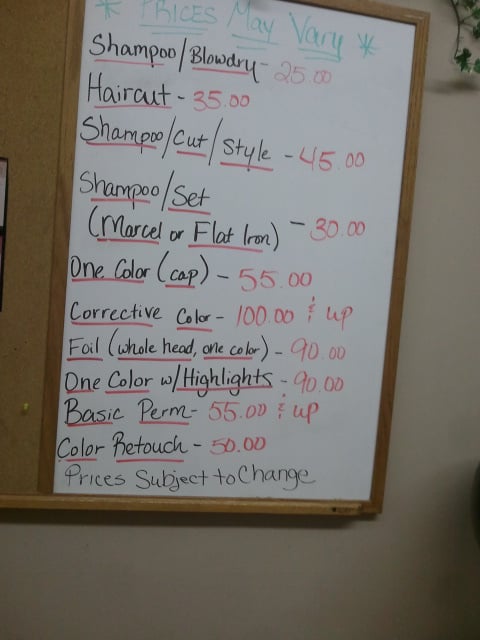 * PRICES May Vary *
Shampoo/Blowdry - 25.00
Haircut - 35.00
Shampoo/Cut/Style - 45.00
Shampoo/Set
(Marcel or Flat Iron) - 30.00
One Color (cap) - 55.00
Corrective Color - 100.00 & up
Foil (whole head, one color) - 90.00
One Color w/Highlights - 90.00
Basic Perm - 55.00 & up
Color Retouch - 50.00
Prices Subject to Change